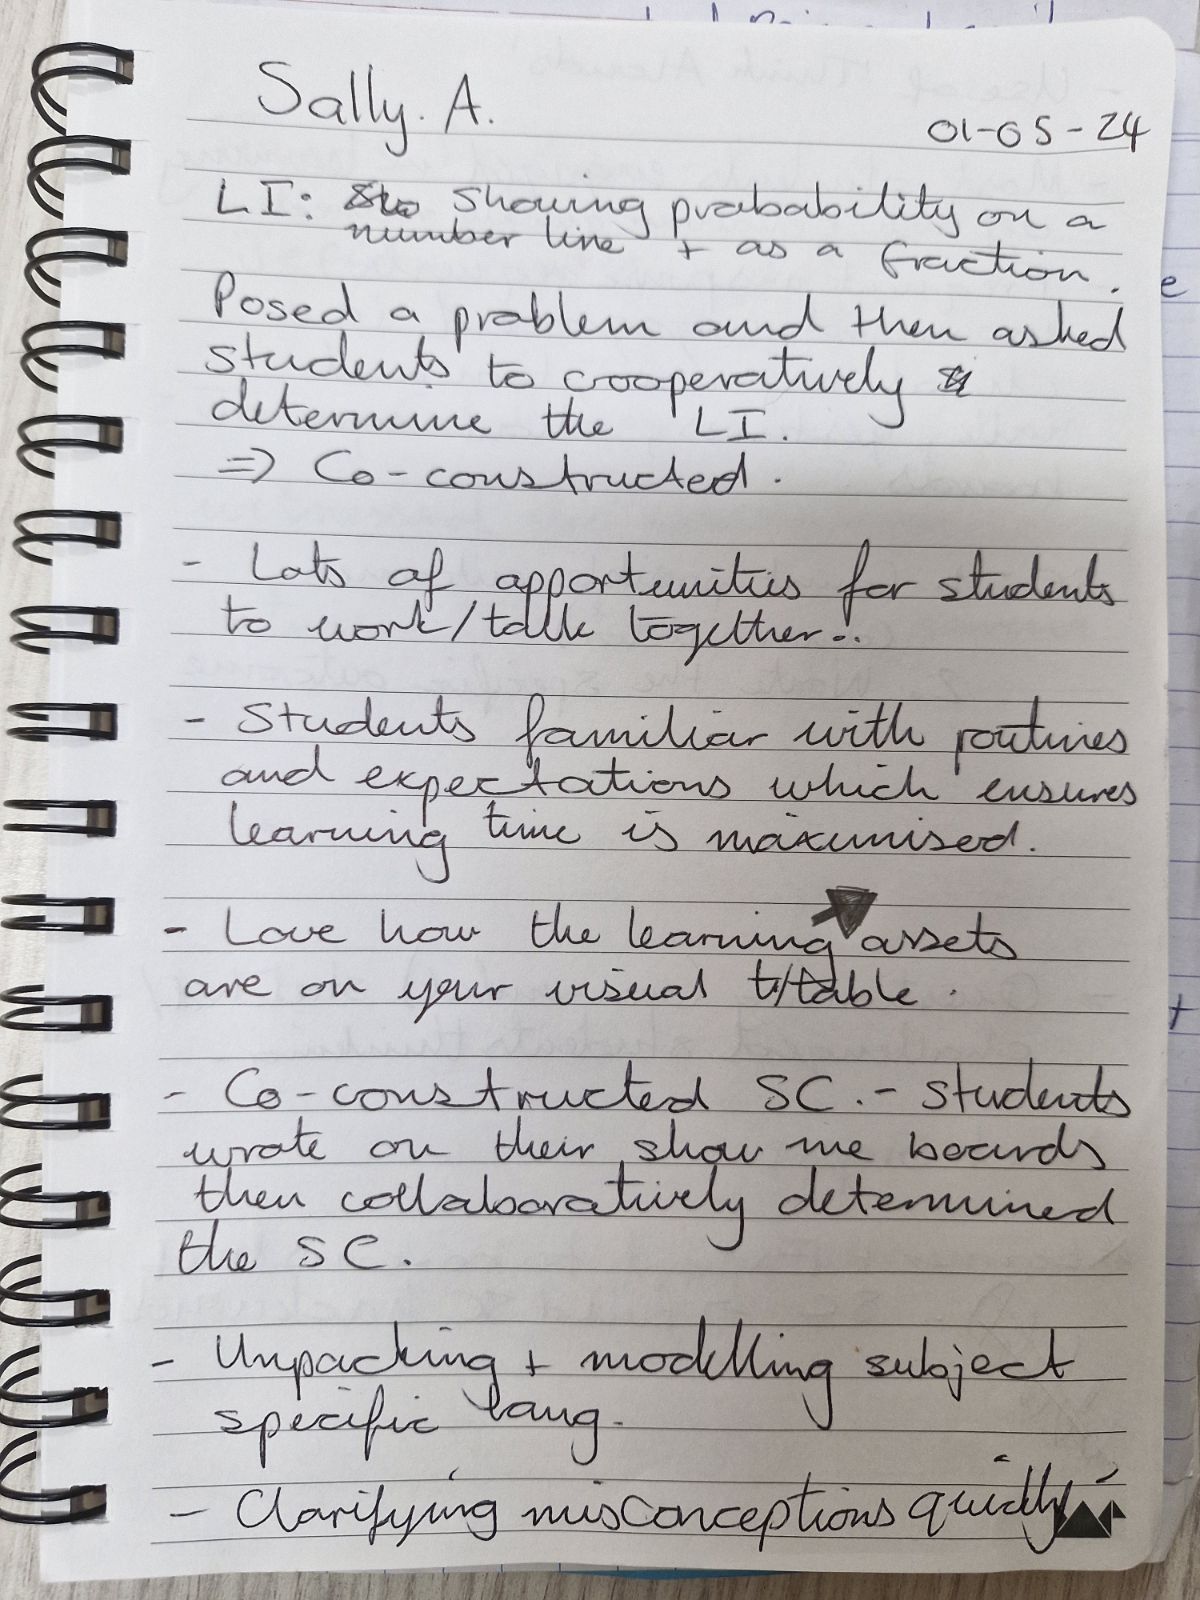 Sally. A.
01-05-24
LI: Showing probability on a
number line + as a fraction.
Posed a problem and then asked
students to cooperatively
determine the LI.
=> Co-constructed.
- Lots of opportunities for students
to work/talk together..
- Students familiar with routines
and expectations which ensures
learning time is maximised.
- Love how the learning assets
are on your visual t/table.
- Co-constructed SC. - Students
wrote on their show me boards
then collaboratively determined
the SC.
- Unpacking + modelling subject
specific lang.
- Clarifying misconceptions quickly